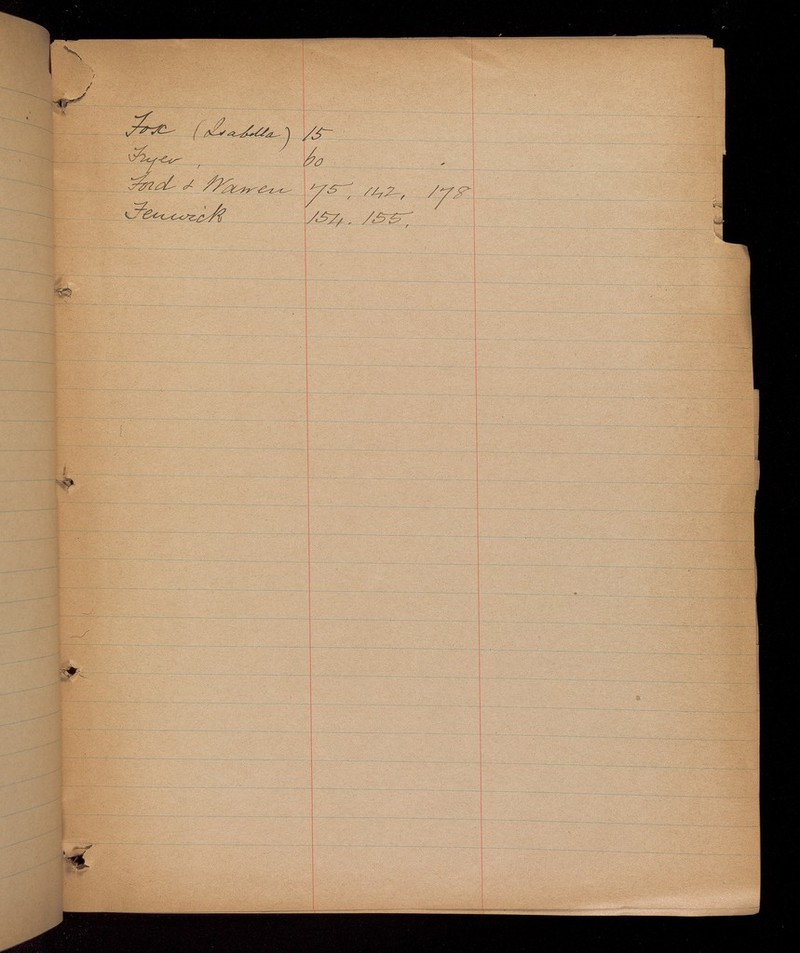 Fox (Isabella) 15
Fryer, 60
Ford & Warren 75, 142, 178
Fenwick 154. 155.